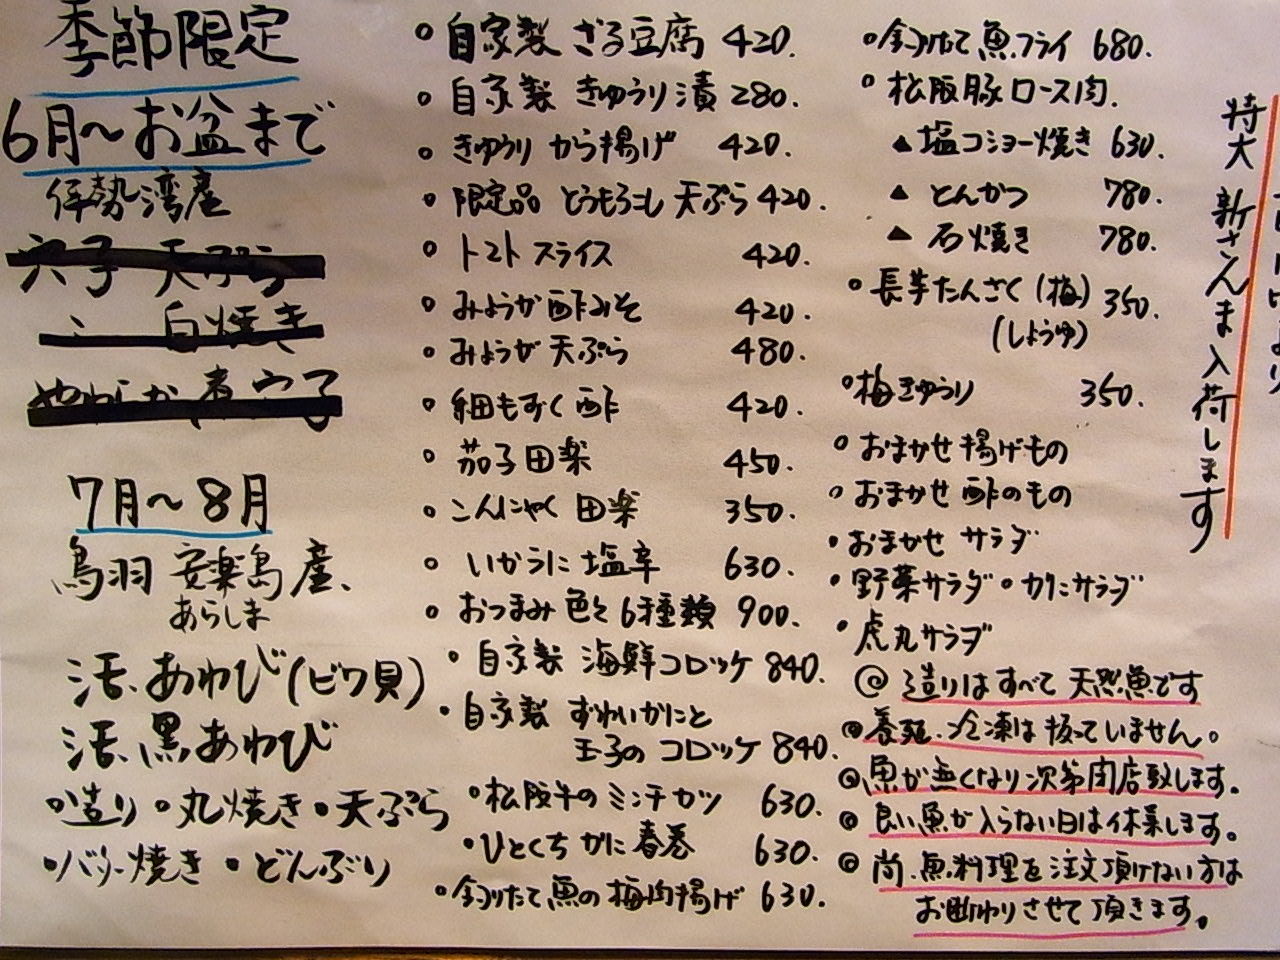 季節限定
6月〜お盆まで
伊勢湾産
穴子 天ぷら
〃 白焼き
やわらか煮穴子
7月〜8月
鳥羽 安楽島産、
あらしま
活、あわび(ビワ貝)
活、黒あわび
・造り・丸焼き・天ぷら
・バター焼き・どんぶり
○自家製 ざる豆腐 420.
○自家製 きゅうり漬 280.
○きゅうり から揚げ 420.
○限定品 とうもろこし 天ぷら 420.
○トマトスライス 420.
○みょうが酢みそ 420.
○みょうが天ぷら 480.
○細もずく酢 420.
○茄子田楽 450.
○こんにゃく田楽 350.
○いかうに塩辛 630.
○おつまみ色々6種類 900.
・自家製 海鮮コロッケ 840.
・自家製 ずわいがにと
玉子のコロッケ 840.
・松阪牛のミンチカツ 630.
・ひとくちかに春巻 630.
・釣りたて魚の梅肉揚げ 630.
○釣りたて魚フライ 680.
○松阪豚ロース肉.
▲塩コショー焼き 630.
▲とんかつ 780.
▲石焼き 780.
・長芋たんざく(梅) 350.
(しょうゆ)
・梅きゅうり 350.
○おまかせ揚げもの
○おまかせ酢のもの
・おまかせサラダ
・野菜サラダ・かにサラダ
・虎丸サラダ
◎造りはすべて天然魚です
◎養殖、冷凍は扱っていません。
◎魚が無くなり次第閉店致します。
◎良い魚が入らない日は休業します。
◎尚、魚料理を注文頂けない方は
お断わりさせて頂きます。
特大 新さんま入荷します